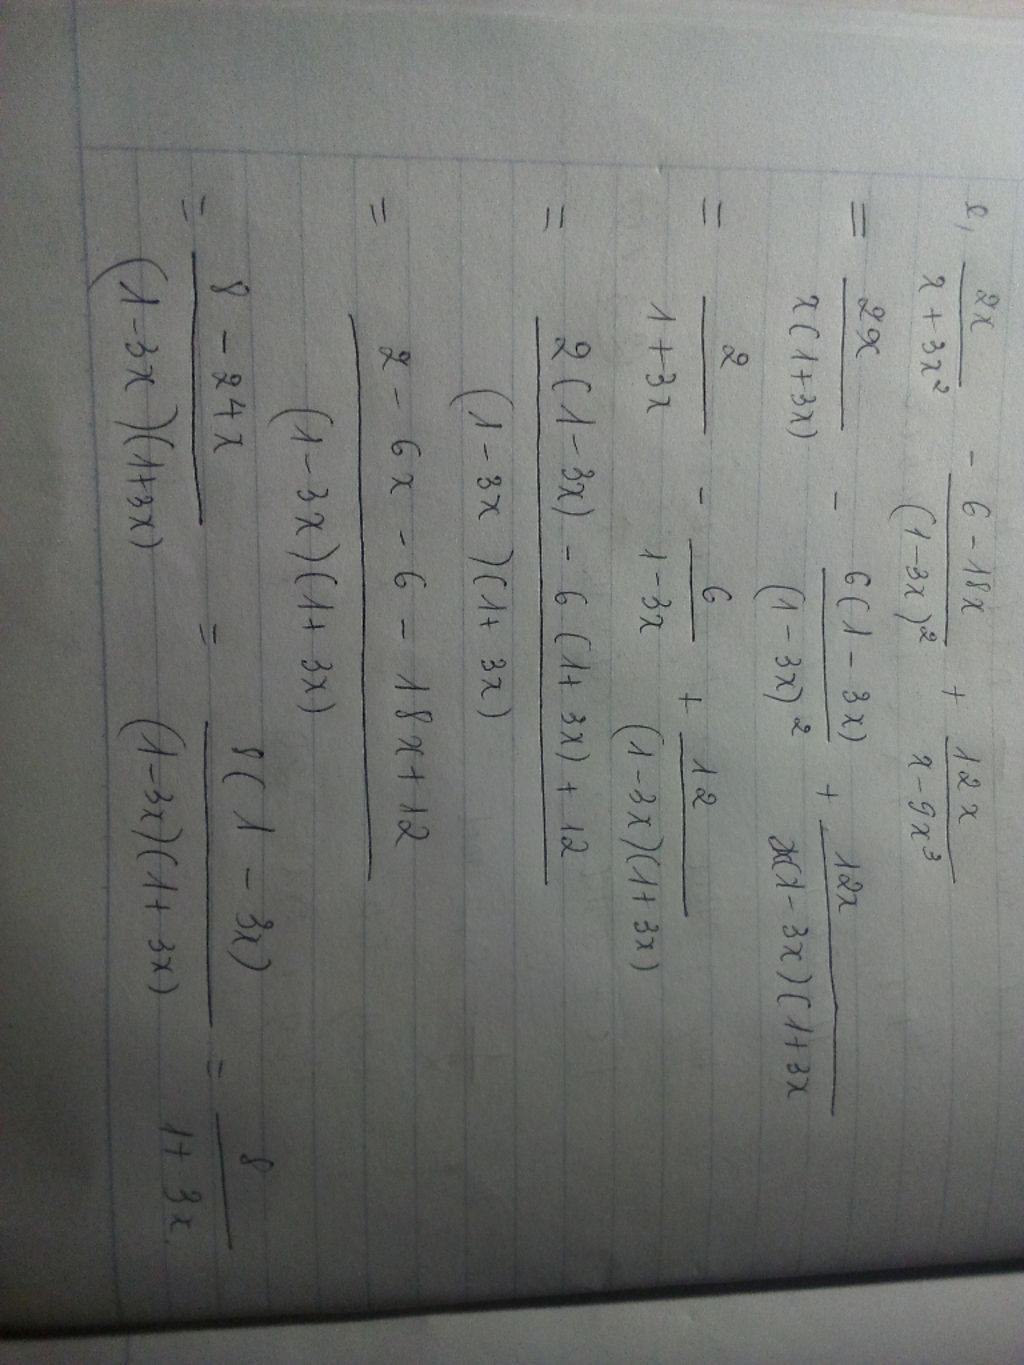 e, 2x / (x + 3x²) - (6 - 18x) / (1 - 3x)² + 12x / (x - 9x³)
= 2x / x(1 + 3x) - 6(1 - 3x) / (1 - 3x)² + 12x / x(1 - 3x)(1 + 3x
= 2 / (1 + 3x) - 6 / (1 - 3x) + 12 / (1 - 3x)(1 + 3x)
= (2(1 - 3x) - 6(1 + 3x) + 12) / (1 - 3x)(1 + 3x)
= (2 - 6x - 6 - 18x + 12) / (1 - 3x)(1 + 3x)
= (8 - 24x) / (1 - 3x)(1 + 3x) = 8(1 - 3x) / (1 - 3x)(1 + 3x) = 8 / (1 + 3x)